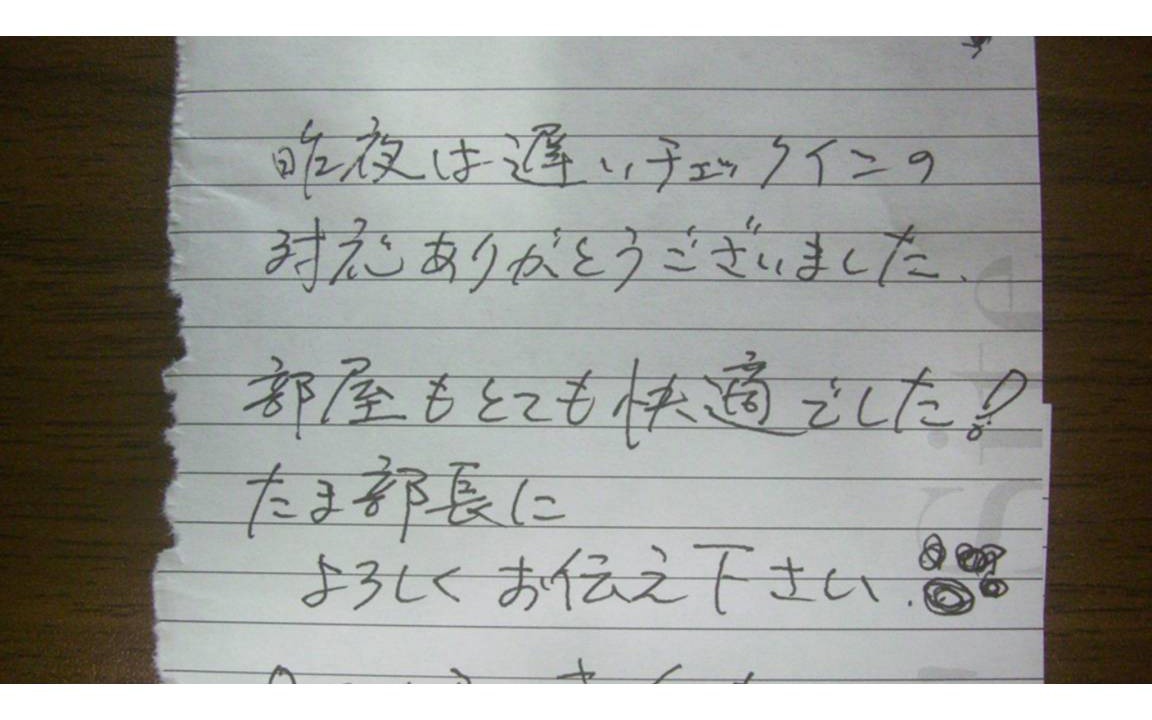 昨夜は遅いチェックインの
対応ありがとうございました.
部屋もとても快適でした!
たま部長に
よろしくお伝え下さい.